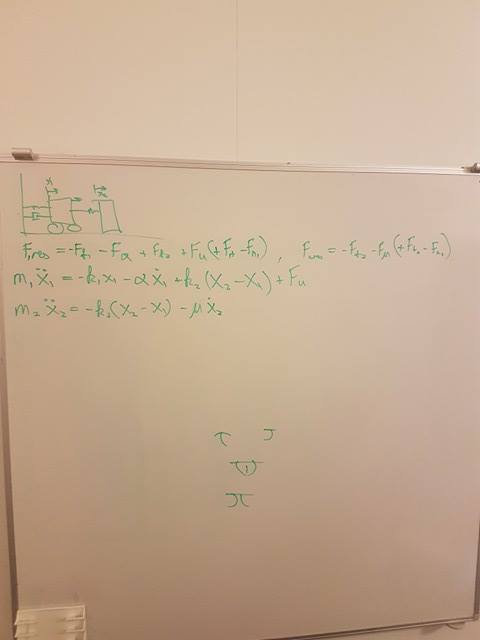 x₁ x₂
F₁,res = -F_k₁ - F_α + F_k₂ + F_u (+F_t₁ - F_n₁) , = -F_k₂ - F_μ (+F_t₂ - F_n₂)
m₁ẍ₁ = -k₁x₁ - αẋ₁ + k₂(x₂ - x₁) + F_u
m₂ẍ₂ = -k₂(x₂ - x₁) - μẋ₂